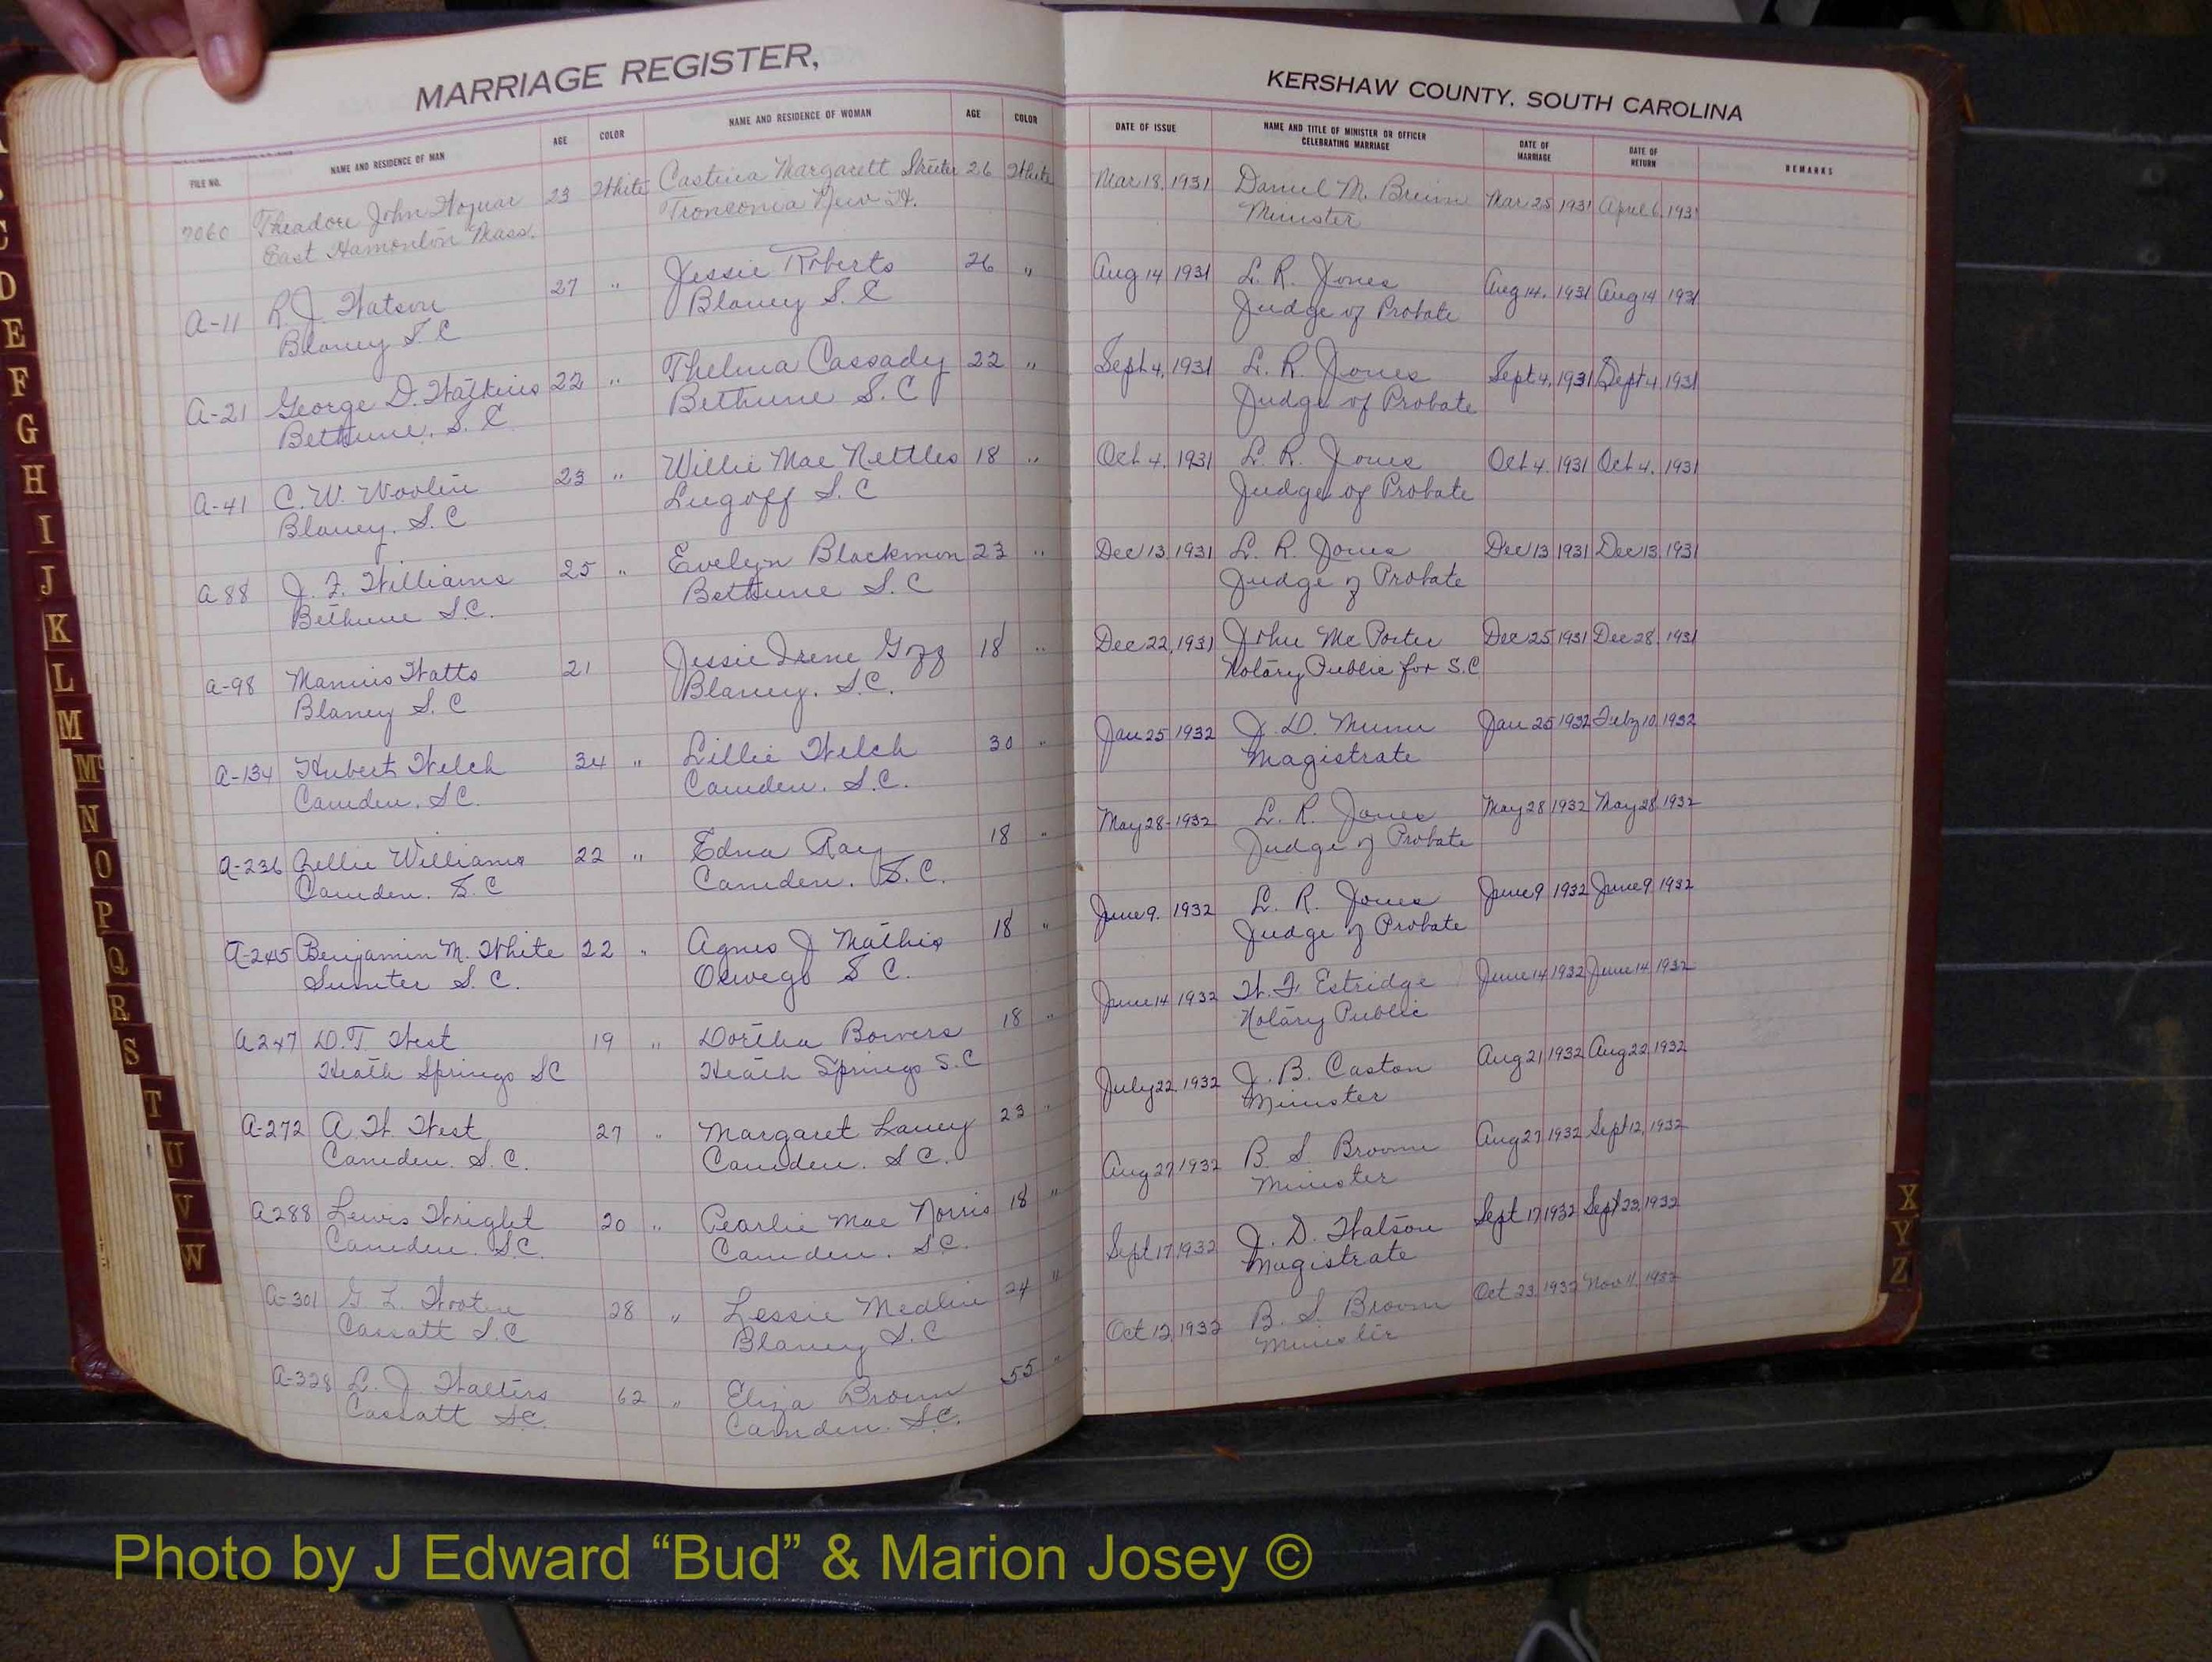 MARRIAGE REGISTER,
FILE NO. NAME AND RESIDENCE OF MAN AGE COLOR NAME AND RESIDENCE OF WOMAN AGE COLOR
7060 Theadore John 23 White Castina Margarett 26 White
East Hamonton Mass. New H.
A-11 R J. Watson 27 " Jessie Roberts 26 "
Blaney S. C Blaney S. C
A-21 George D. Watkins 22 " Thelma Cassady 22 "
Bethune, S. C Bethune S. C
A-41 C. W. Woolin 23 " Willie Mae Nettles 18 "
Blaney, S. C Lugoff S. C
A 88 J. F. Williams 25 " Evelyn Blackmon 23 "
Bethune S.C. Bethune S. C
A-98 Watts 21 Jessie Irene 18 "
Blaney S. C Blaney, S.C.
A-134 Hubert Welch 34 " Lillie Welch 30 "
Camden, S.C. Camden, S.C.
A-236 Williams 22 " Edna Ray 18 "
Camden. S. C Camden. S. C.
A-245 Benjamin M. White 22 " Agnes J Mathis 18 "
Sumter S. C. Oswego S C.
A247 D. T West 19 " Dortha Bowers 18 "
Heath Springs SC Heath Springs S. C
A-272 A. W. West 27 " Margaret Laney 23 "
Camden. S. C. Camden. S C.
A288 Lewis Wright 20 " Pearlie Mae Norris 18 "
Camden. S.C. Camden. S.C.
A-301 G. L. Wooten 28 " Lessie Medlin 24 "
Cassatt S. C Blaney S. C
A-328 L. J. Walters 62 " Eliza Brown 55 "
Cassatt S.C. Camden. S.C.
KERSHAW COUNTY, SOUTH CAROLINA
DATE OF ISSUE NAME AND TITLE OF MINISTER OR OFFICER CELEBRATING MARRIAGE DATE OF MARRIAGE DATE OF RETURN REMARKS
Mar 18, 1931 Daniel M. Mar 25 1931 April 6, 1931
Minister
Aug 14 1931 L. R. Jones Aug 14, 1931 Aug 14 1931
Judge of Probate
Sept 4, 1931 L. R. Jones Sept 4, 1931 Sept 4 1931
Judge of Probate
Oct 4, 1931 L. R. Jones Oct 4, 1931 Oct 4, 1931
Judge of Probate
Dec 13, 1931 L. R. Jones Dec 13 1931 Dec 13, 1931
Judge of Probate
Dec 22, 1931 John Mc Porter Dec 25 1931 Dec 28, 1931
Notary Public for S.C
Jan 25 1932 J. D. Munn Jan 25 1932 Feby 10, 1932
Magistrate
May 28-1932 L. R. Jones May 28 1932 May 28, 1932
Judge of Probate
June 9. 1932 L. R. Jones June 9 1932 June 9, 1932
Judge of Probate
June 14 1932 W. F. Estridge June 14 1932 June 14, 1932
Notary Public
July 22, 1932 J. B. Caston Aug 21, 1932 Aug 22, 1932
Minister
Aug 27, 1932 B. S. Broom Aug 27 1932 Sept 12, 1932
Minister
Sept 17, 1932 J. D. Watson Sept 17 1932 Sept 23, 1932
Magistrate
Oct 12, 1932 B. S. Broom Oct 23, 1932 Nov 11, 1932
Minister
C
D
E
F
G
H
I
J
K
L
M
Mc
N
O
P
Q
R
S
T
U
V
W
X
Y
Z
Photo by J Edward “Bud” & Marion Josey ©